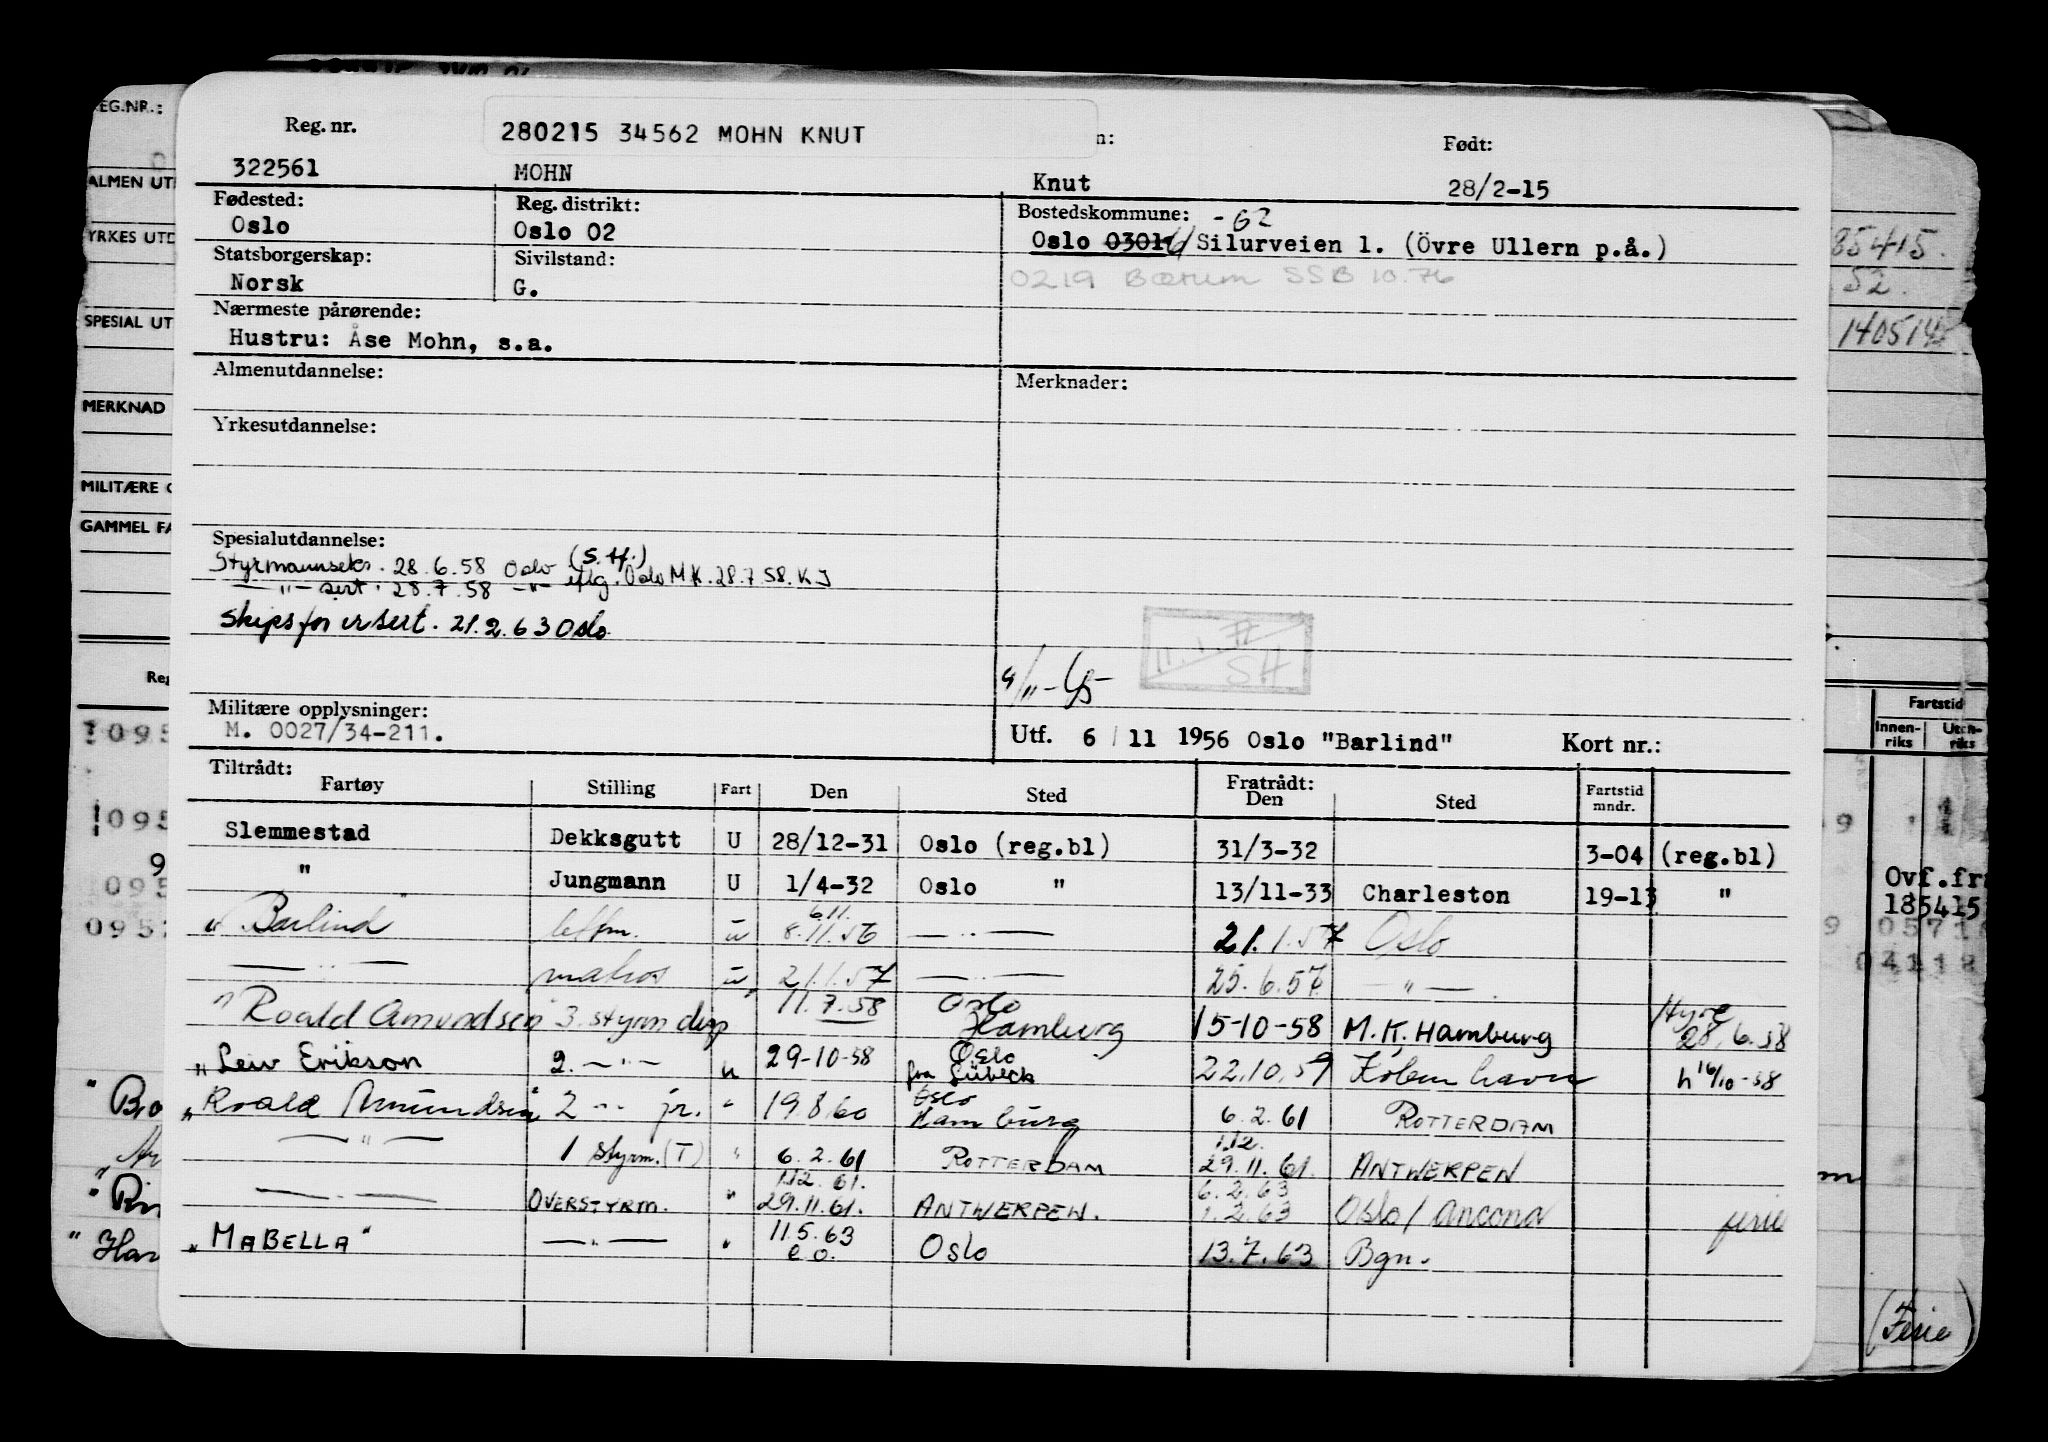 280215 34562 MOHN KNUT
Reg. nr. n: Født:
322561 MOHN Knut 28/2-15
Fødested: Reg. distrikt: Bostedskommune: -62
Oslo Oslo 02 Oslo 0301 Silurveien 1. (Övre Ullern p.å.)
Statsborgerskap: Sivilstand: 0219 Bærum SSB 10.76
Norsk G.
Nærmeste pårørende:
Hustru: Åse Mohn, s.a.
Almenutdannelse: Merknader:
Yrkesutdannelse:
Spesialutdannelse:
Styrmannseks. 28.6.58 Oslo (S.H.)
—"— sert. 28.7.58 —"— eflg. Oslo M.K. 28.7.58. KJ
Skipsførersert. 21.2.63 Oslo
11.1.77
SH
Militære opplysninger:
M. 0027/34-211. Utf. 6/11 1956 Oslo "Barlind" Kort nr.:
Tiltrådt: Fratrådt:
Fartøy Stilling Fart Den Sted Den Sted Fartstid mndr.
Slemmestad Dekksgutt U 28/12-31 Oslo (reg.bl) 31/3-32 3-04 (reg.bl)
" Jungmann U 1/4-32 Oslo " 13/11-33 Charleston 19-13 "
6.11.
"Barlind" lettm. u 8.11.56 —"— 21.1.57 Oslo
—"— matros u 21.1.57 —"— 25.6.57 —"—
"Roald Amundsen" 3. styrm disp 11.7.58 Oslo Hamburg 15-10-58 M.K. Hamburg Hyre 28.6.58
"Leiv Erikson 2. —"— u 29-10-58 Oslo fra Lübeck 22.10.59 København h 16/10-58
"Roald Amundsen" 2 —"— jr. " 19.8.60 Oslo Hamburg 6.2.61 ROTTERDAM
—"— 1 styrm. (T) " 6.2.61 ROTTERDAM 1.12. 29.11.61. ANTWERPEN
—"— OVERSTYRM. " 1.12.61. 29.11.61. ANTWERPEN. 6.2.63 1.2.63 Oslo/Ancona ferie
"MABELLA" —"— " 11.5.63 e.o. Oslo 13.7.63 Bgn.
EG.NR.:
ALMEN UT
YRKES UTD
SPESIAL UT
MERKNAD
MILITÆRE
GAMMEL FA
Reg
095
095
095
095
Bro
Har
85415.
52.
140514
Fartstid
Innen-riks Uten-riks
Ovf.fr
185415
0571
04118
(Ferie)